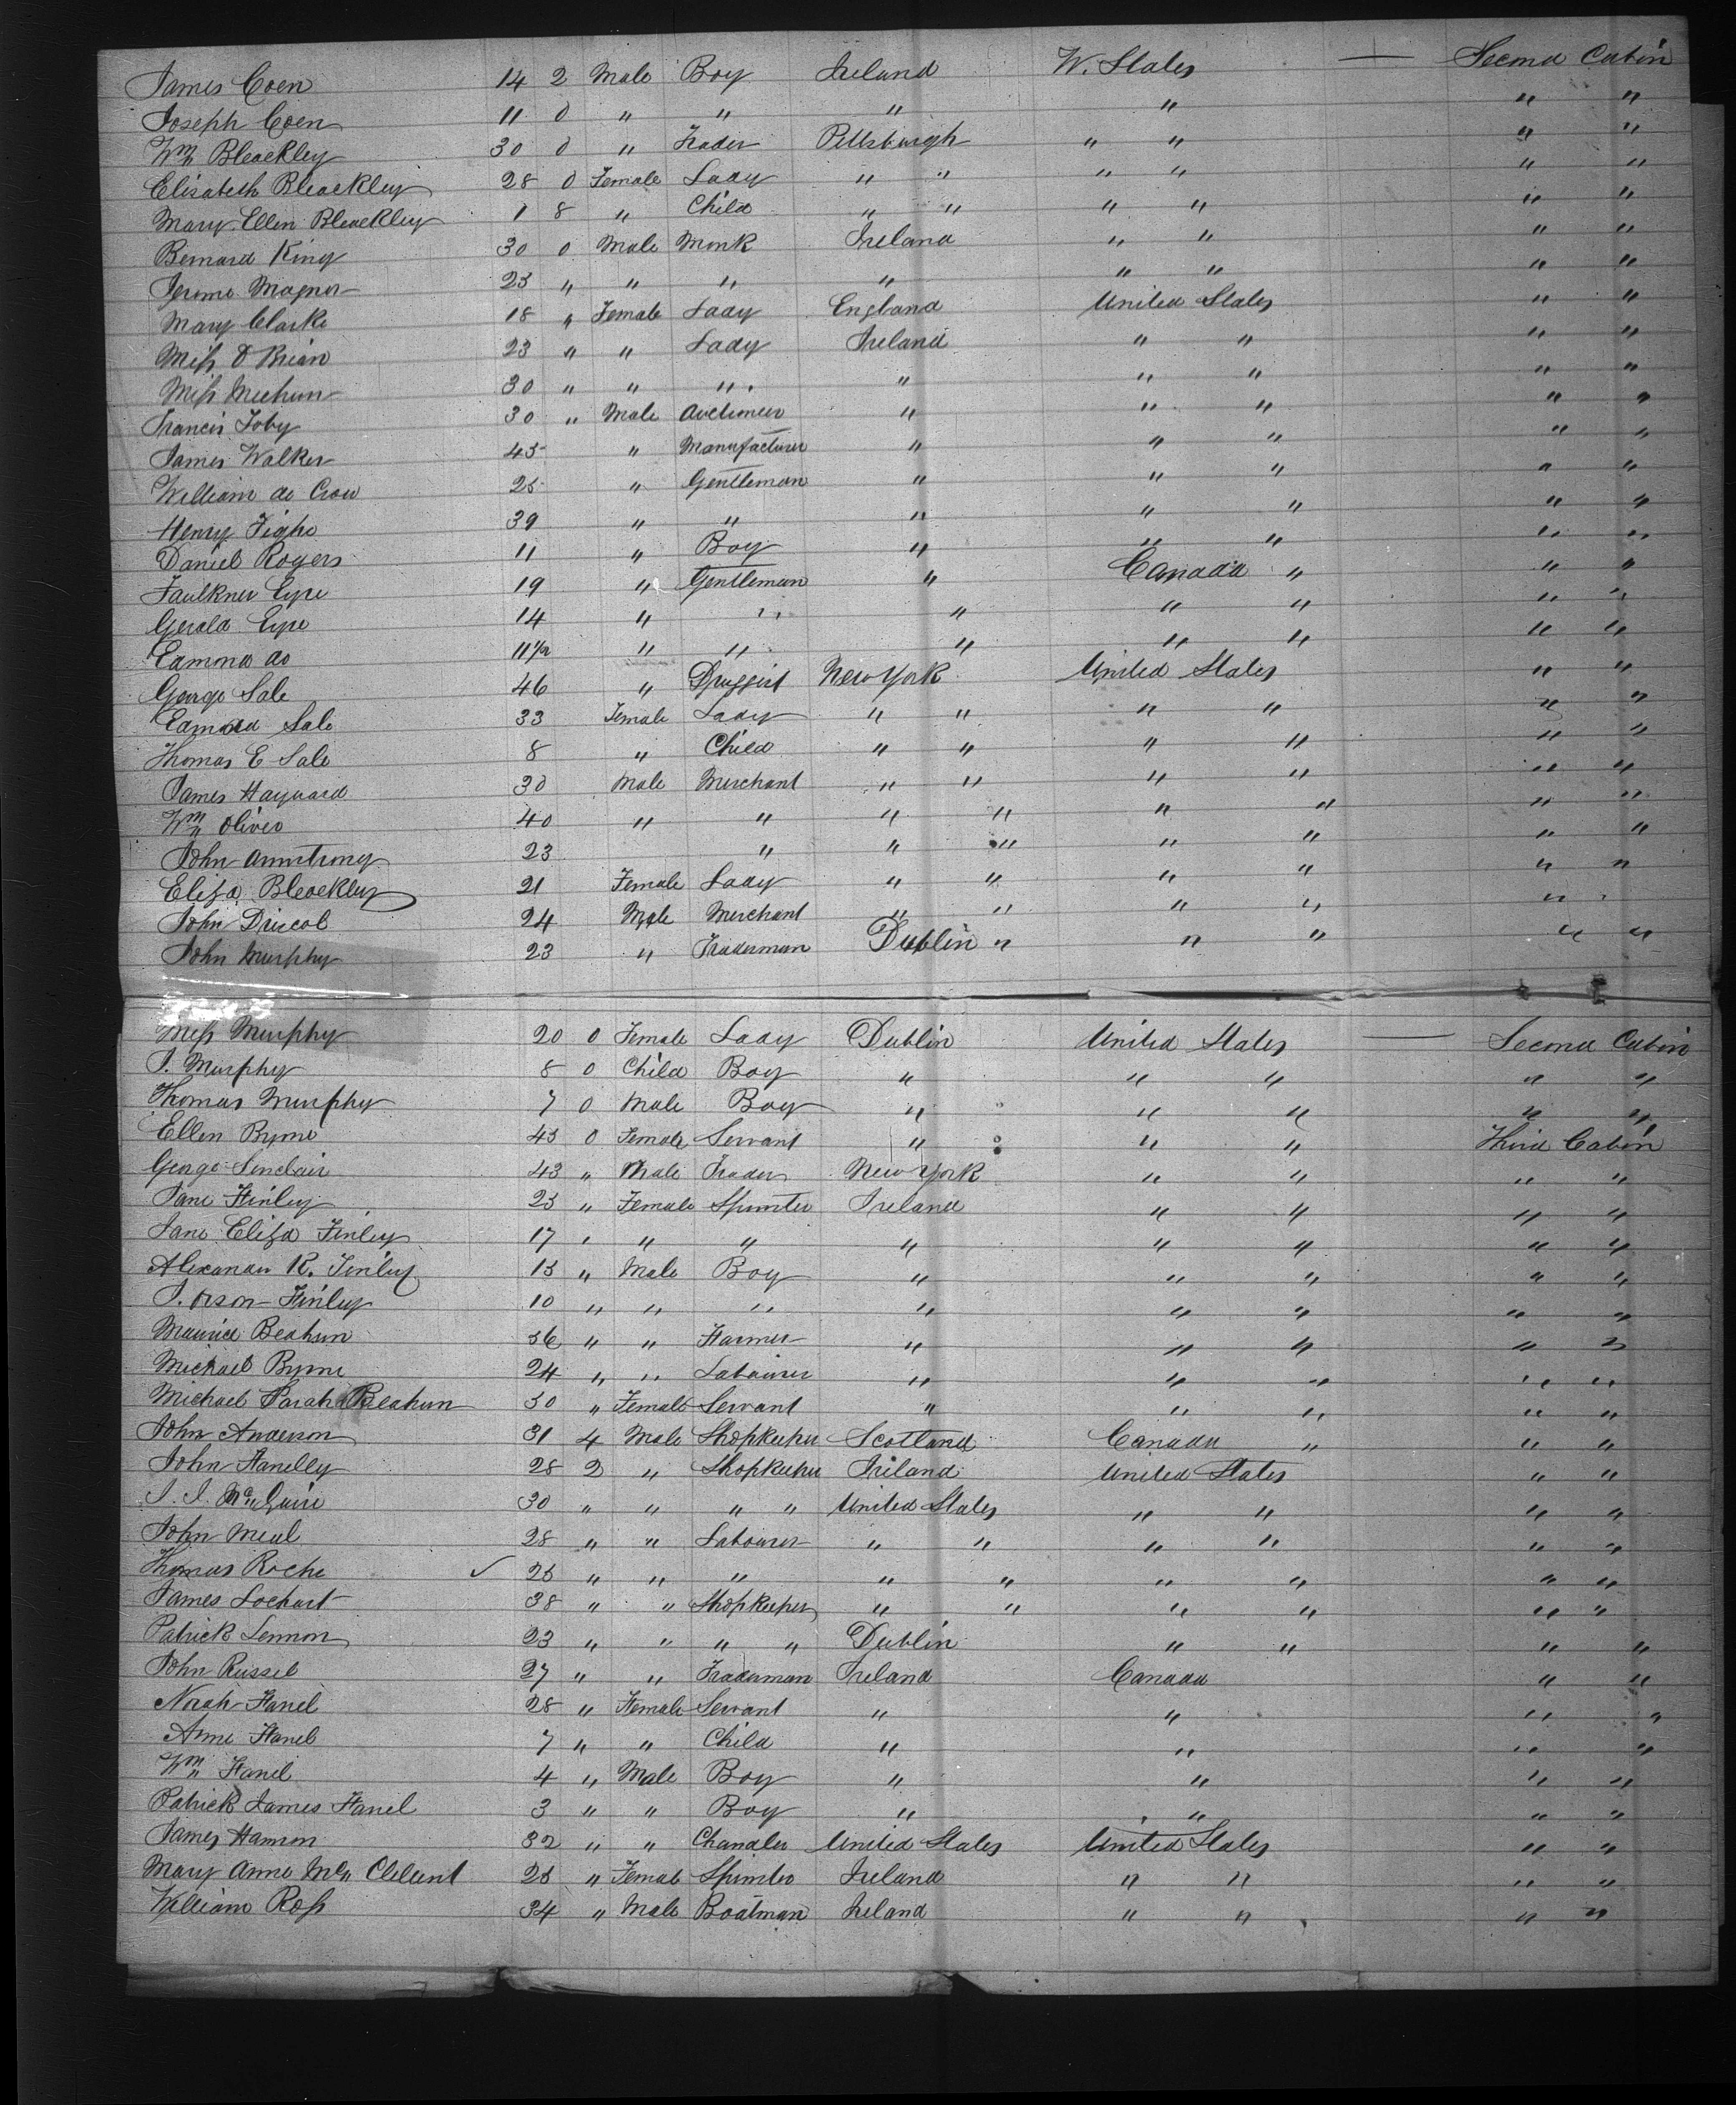 James Coen 14 2 Male Boy Ireland W. States — Second Cabin
Joseph Coen 11 0 " " " " " "
Wm Bleackley 30 0 " Trader Pittsburgh " " " "
Elisabeth Bleackley 28 0 Female Lady " " " " " "
Mary Ellen Bleackley 1 8 " Child " " " " " "
Bernard King 30 0 Male Monk Ireland " " " "
Jerome Magner 23 " " " " " " " "
Mary Clarke 18 " Female Lady England United States " "
Miss O Brian 23 " " Lady Ireland " " " "
Miss Meehan 30 " " " " " " " "
Francis Toby 30 " Male Auctioneer " " " " "
James Walker 45 " Manufacturer " " " " "
William de Crow 25 " Gentleman " " " " "
Henry Tighe 39 " " " " " " "
Daniel Rogers 11 " Boy " " " " "
Faulkner Eyre 19 " Gentleman " Canada " " "
Gerald Eyre 14 " " " " " " "
Edmond do 11 1/2 " " " " " " "
George Sale 46 " Druggist New York United States " "
Sale 33 Female Lady " " " " " "
Thomas E Sale 8 " Child " " " " " "
James Hayward 30 Male Merchant " " " " " "
Wm Oliver 40 " " " " " " " "
John Armstrong 23 " " " " " " "
Eliza Bleackley 21 Female Lady " " " " " "
John Driscol 24 Male Merchant " " " " " "
John Murphy 23 " Tradesman Dublin " " " " "
Miss Murphy 20 0 Female Lady Dublin United States — Second Cabin
J. Murphy 8 0 Child Boy " " " " "
Thomas Murphy 7 0 Male Boy " " " " "
Ellen Byrne 45 0 Female Servant " " " Third Cabin
George Sinclair 43 " Male Trader New York " " " "
Jane Finley 25 " Female Spinster Ireland " " " "
Jane Eliza Finley 17 " " " " " " " "
Alexander R. Finley 13 " Male Boy " " " " "
Finley 10 " " " " " " " "
Maurice Beahan 36 " " Farmer " " " " "
Michael Byrne 24 " " Labourer " " " " "
Michael Sarah Beahan 30 " Female Servant " " " " "
John Anderson 31 4 Male Shopkeeper Scotland Canada " " "
John Fanelly 28 2 " Shopkeeper Ireland United States " "
Mc Guire 30 " " " " United States " " " "
John Meal 28 " " Labourer " " " " " "
Thomas Roche ✓ 25 " " " " " " " " "
James Lochart 38 " " Shopkeeper " " " " " "
Patrick Lennon 23 " " " " Dublin " " " "
John Russel 27 " " Tradesman Ireland Canada " "
Norah Fanel 28 " Female Servant " " " "
Anne Fanel 7 " " Child " " " "
Wm Fanel 4 " Male Boy " " " "
Patrick James Fanel 3 " " Boy " " " "
James Hannon 32 " " Chandler United States United States " "
Mary Anne Mc Clelent 25 " Female Spinster Ireland " " " "
William Ross 34 " Male Boatman Ireland " " " "